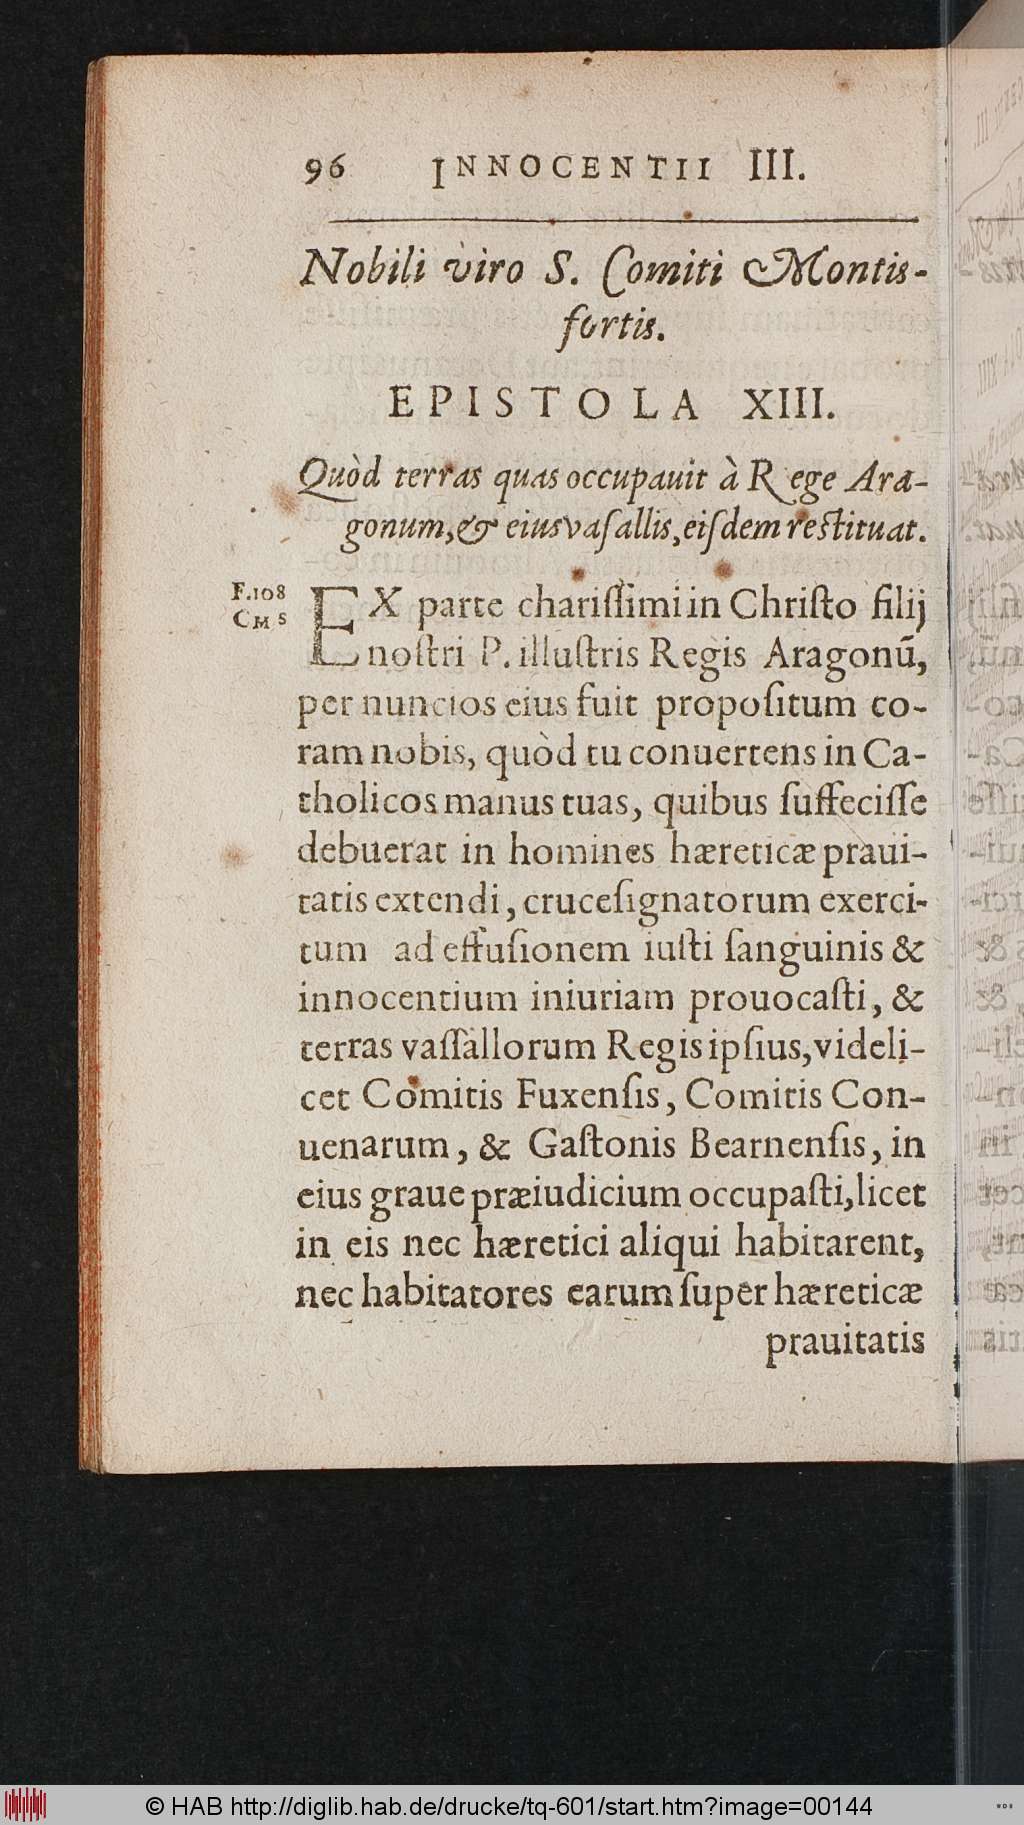 96 INNOCENTII III.
Nobili viro S. Comiti Montis-
fortis.
EPISTOLA XIII.
Quòd terras quas occupauit à Rege Ara-
gonum, & eius vaſallis, eiſdem reſtituat.
F.108
CM S
EX parte chariſſimi in Chriſto filij
noſtri P. illuſtris Regis Aragonū,
per nuncios eius fuit propoſitum co-
ram nobis, quòd tu conuertens in Ca-
tholicos manus tuas, quibus ſuffeciſſe
debuerat in homines hæreticæ praui-
tatis extendi, cruceſignatorum exerci-
tum ad effuſionem iuſti ſanguinis &
innocentium iniuriam prouocaſti, &
terras vaſſallorum Regis ipſius, videli-
cet Comitis Fuxenſis, Comitis Con-
uenarum, & Gaſtonis Bearnenſis, in
eius graue præiudicium occupaſti, licet
in eis nec hæretici aliqui habitarent,
nec habitatores earum ſuper hæreticæ
prauitatis
© HAB http://diglib.hab.de/drucke/tq-601/start.htm?image=00144